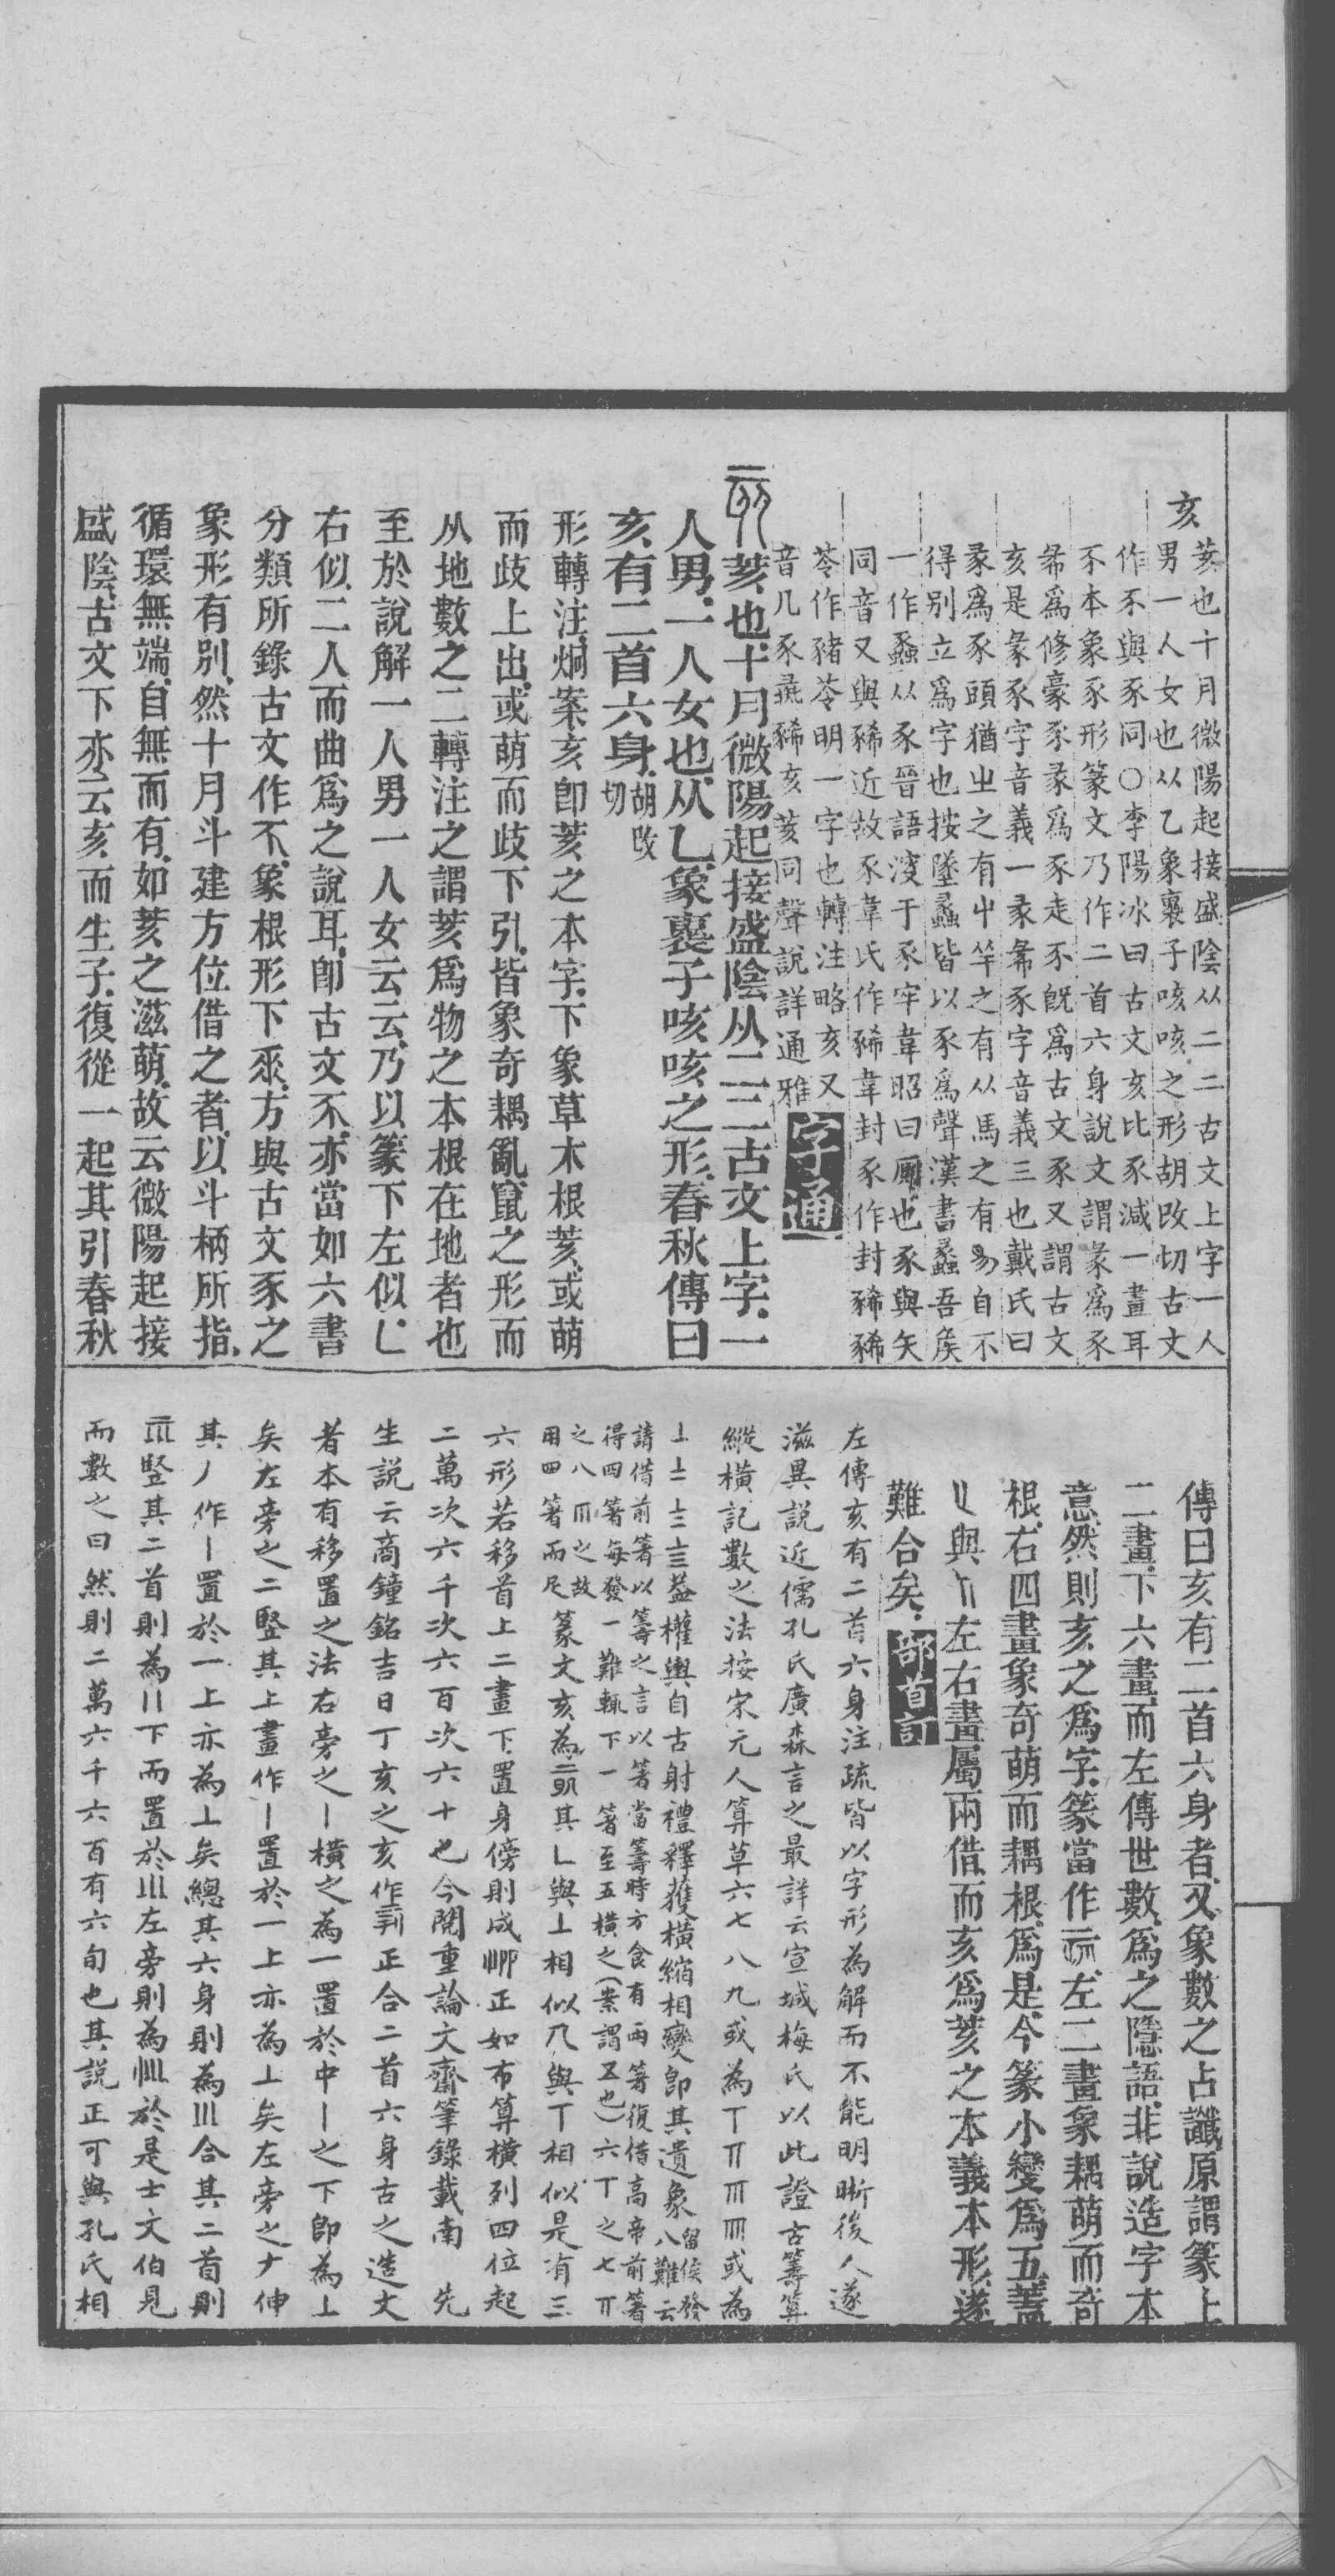 亥
荄也十月微陽起接盛陰从二二古文上字一人
男一人女也从乙象褢子咳咳之形胡改切古文
作𠀅與豕同○李陽冰曰古文亥比豕減一畫耳
不本象豕形篆文乃作二首六身說文謂彖爲豕
㣇爲修豪豕彖爲豕走不旣爲古文豕又謂古文
亥是彖豕字音義一彖㣇豕字音義三也戴氏曰
彖爲豕頭猶㞢之有屮竿之有从馬之有𢒉自不
得別立爲字也按墜蠡皆以豕爲聲漢書蠡吾矦
一作蟸从豕晉語溲于豕牢韋昭曰厠也豕與矢
同音又與豨近故豕韋氏作豨韋封豕作封豨豨
苓作豬苓明一字也轉注略亥又
音几豕燕豨亥荄同聲說詳通雅 字通
荄也十月微陽起接盛陰从二二古文上字一
人男一人女也从乙象褢子咳咳之形春秋傳曰
亥有二首六身胡改切
形轉注烱案亥卽荄之本字下象草木根荄或萌
而歧上出或萌而歧下引皆象奇耦亂竄之形而
从地數之二轉注之謂荄爲物之本根在地者也
至於說解一人男一人女云云乃以篆下左似乚
右似二人而曲爲之說耳卽古文𠀅亦當如六書
分類所錄古文作不象根形下𠂹方與古文豕之
象形有別然十月斗建方位借之者以斗柄所指
循環無端自無而有如荄之滋萌故云微陽起接
盛陰古文下亦云亥而生子復從一起其引春秋
傳曰亥有二首六身者又象數之占讖原謂篆上
二畫下六畫而左傳世數爲之隱語非說造字本
意然則亥之爲字篆當作左二畫象耦萌而奇
根右四畫象奇萌而耦根爲是今篆小變爲五蓋
與左右畫屬兩借而亥爲荄之本義本形遂
難合矣 部首訂
左傳亥有二首六身注疏皆以字形為解而不能明晰後人遂
滋異說近儒孔氏廣森言之最詳云宣城梅氏以此證古籌算
縱橫記數之法按宋元人算草六七八九或為〒𝍡𝍢𝍣或為
⊥𝍪𝍫𝍬葢權輿自古射禮釋獲橫縮相變卽其遺象留侯發八難云
請借前箸以籌之言以箸當籌時方食有兩箸復借高帝前箸
得四箸每發一難輒下一箸至五橫之（案謂五也）六丅之七𝍡
之八𝍢之故用四箸而足篆文亥為其乚與⊥相似𠘧與丅相似是有三
六形若移首上二畫下置身傍則成正如布算橫列四位起
二萬次六千次六百次六十也今閱重論文齋筆錄載南 先
生說云商鐘銘吉日丁亥之亥作正合二首六身古之造文
者本有移置之法右旁之丨橫之為一置於中丨之下卽為⊥
矣左旁之二豎其上畫作丨置於一上亦為⊥矣左旁之𠂇伸
其丿作丨置於一上亦為⊥矣總其六身則為〣合其二首則
豎其二首則為〢下而置於〣左旁則為於是士文伯見
而數之曰然則二萬六千六百有六旬也其說正可與孔氏相